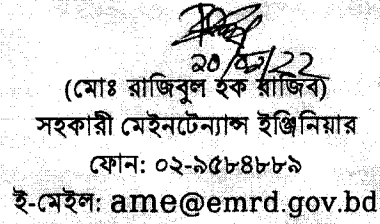 (মোঃ রাজিবুল হক রাজিব)
সহকারী মেইনটেন্যান্স ইঞ্জিনিয়ার
ফোন: ০২-৯৫৮৪৮৮৯
ই-মেইল: ame@emrd.gov.bd